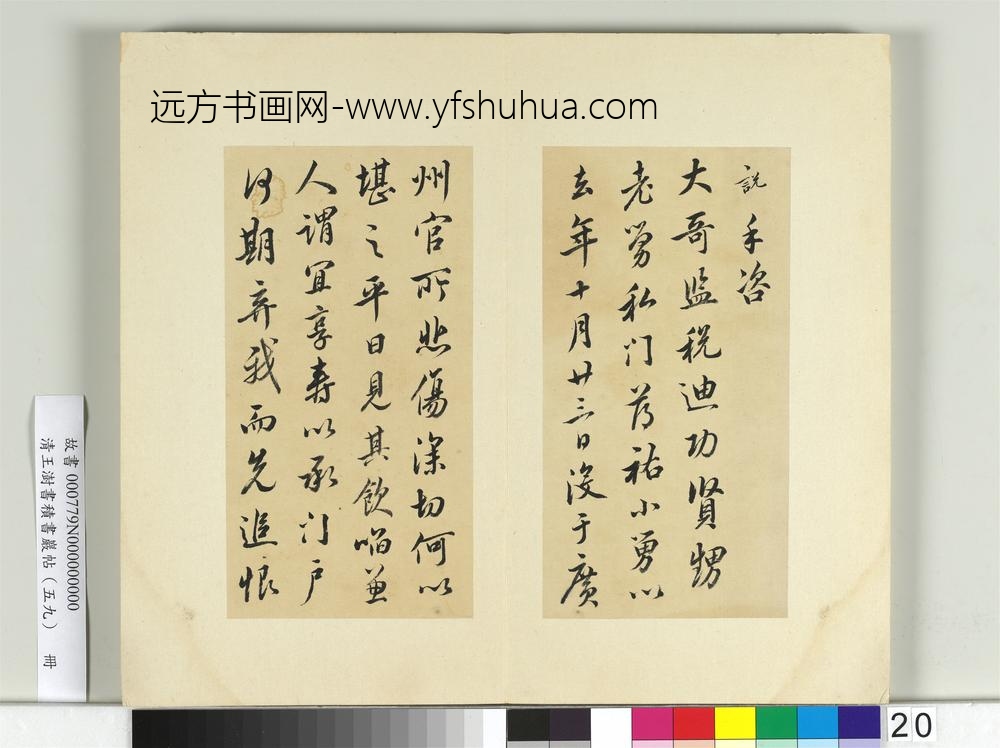 远方书画网-www.yfshuhua.com
説手咨
大哥監税迪功賢甥
老舅私门荐祐小舅以
去年十月廿三日没于廣
州官所悲傷深切何以
堪之平日見其飲啗兼
人謂宜享壽以承门户
何期弃我而先追恨
故書 000779N000000000
清王澍書積書巖帖(五九) 冊
20